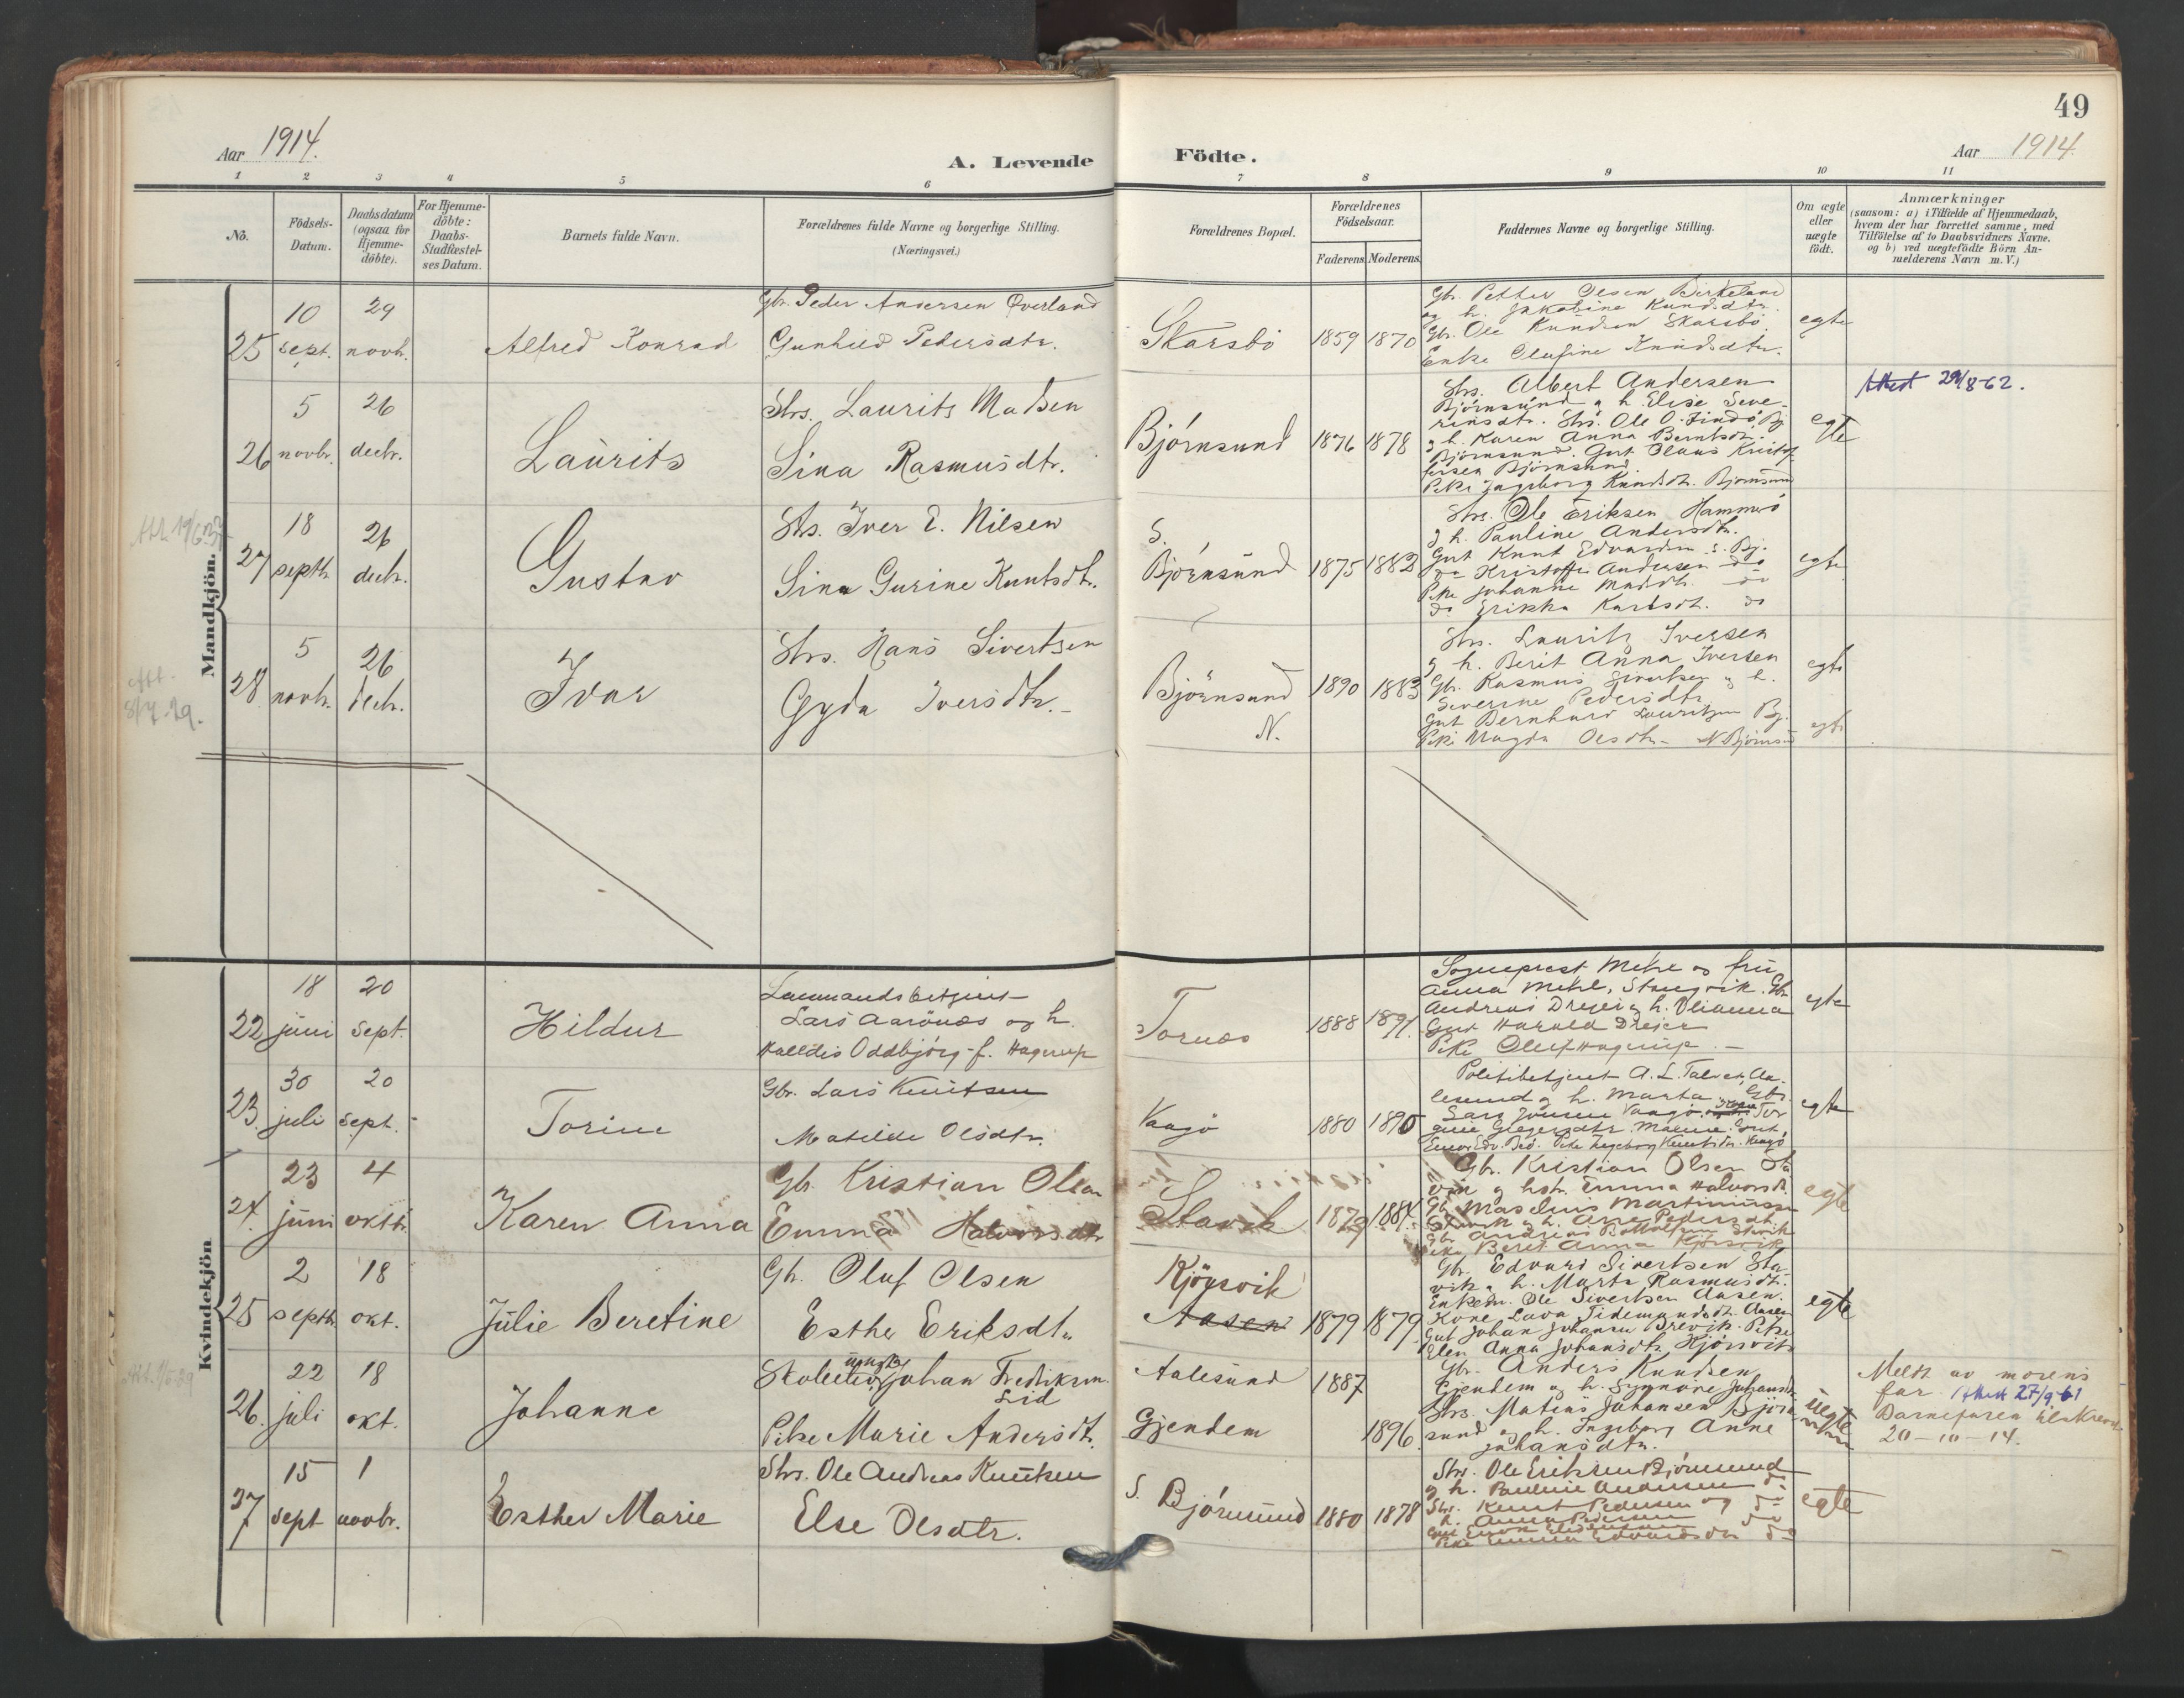 49
Aar 1914.
A. Levende Födte.
Aar 1914.
1 2 3 4 5 6 7 8 9 10 11
No.
Födsels-
Datum.
Daabsdatum
(ogsaa for
Hjemme-
döbte).
For Hjemme-
döbte:
Daabs-
Stadfæstel-
ses Datum.
Barnets fulde Navn.
Forældrenes fulde Navne og borgerlige Stilling.
(Næringsvei.)
Forældrenes Bopæl.
Forældrenes
Födselsaar.
Faderens. Moderens.
Faddernes Navne og borgerlige Stilling.
Om ægte
eller
uægte
födt.
Anmærkninger
(saasom: a) i Tilfælde af Hjemmedaab,
hvem der har forrettet samme, med
Tilföielse af to Daabsvidners Navne,
og b) ved uægtefödte Börn An-
melderens Navn m.V.)
Mandkjön.
25
10
sept.
29
novb.
Alfred Konrad
Gbr. Peder Andersen Overland
Gunhild Pedersdtr.
Skarsbö
1859 1870
Gbr. Petter Olsen Birkeland
og h. Jakobine Kundsdtr.
Gbr. Ole Knudsen Skarsbö
Enke Olufine Knudsdtr.
egte
26
5
novbr.
26
decbr.
Laurits
Strs. Laurits Madsen
Sina Rasmusdtr.
Björnsund
1876 1878
Strs. Albert Andersen
Björnsund og h. Elise Seve-
rinsdtr. Strs. Ole O. Bj.
og h. Karen Anna Berntsdtr.
Björnsund. Gut Olaus Kristof-
fersen Björnsund.
Pike Ingeborg Knudsdtr. Björnsund
egte
Attest 29/8-62.
27
18
septb.
26
decbr.
Gustav
Strs. Iver E. Nilsen
Sina Gurine Knutsdtr.
S.
Björnsund
1875 1882
Strs. Ole Eriksen Hammerö
og h. Pauline Andersdtr.
Gut Knut Edvardsen S. Bj.
do Kristoffer Andersen do
Pike Johanne do
do Erikka do
egte
28
5
novbr.
26
decbr.
Ivar
Strs. Hans Sivertsen
Gyda Iversdtr.
Björnsund
N.
1890 1883
Strs. Laurits Iversen
og h. Berit Anna Iversen
Gbr. Rasmus Sivertsen og h.
Severine Pedersdtr.
Gut Bernhard Lauritsen Bj.
Pike Magda Olsdtr. N Björnsund
egte
egte
8/7-29.
Kvindekjön
22
18
juni
20
sept.
Hildur
Lensmandsbetjent
Lars Aarönæs og h.
Halldis Oddbjörg f. Hagerup
Tornæs
1888 1891.
Sogneprest Mehl og fru
Anna Mehl, Stangvik. Gbr.
Andreas Dreyer og h. Olianna
Gut Harald Dreier
Pike Oluf Hagerup.
egte
23.
30
juli
20
sept.
Torine
Gbr. Lars Knutsen
Matilde Olsdtr.
Vaagö
1880 1890
Politibetjent A. L. Aa-
lesund og h. Marta. Gbr.
Lars Vaagö
Pike Ingeborg Knutsdtr. Vaagö
egte
24.
23
juni
4
oktbr.
Karen Anna
Gbr. Kristian Olsen
Emma Halvorsdtr
Stavik
1879 1884.
Gbr. Kristian Olsen Sta
vik og hstr. Emma Halvorsdtr.
Gbr. Maselius Martinussen
Stavik og h. Pedersdtr.
Gbr. Andreas Stavik
Pike Beret Anna Kjörsvik
egte
25
2
septb.
18
okt.
Julie Beretine
Gbr. Oluf Olsen
Esther Eriksdtr
Kjörsvik
Aasen
1879 1879
Gbr. Edvard Sivertsen Sta
vik og h. Marta Rasmusdtr.
Enkem. Ole Sivertsen Aasen.
Kone Lava Tidemandsdtr. Aasen
Gut Johan Johansen Brevik. Pike
Elen Anna Johansdtr. Kjörsvik
egte
26.
22
juli
18
okt.
Johanne
Skoleelev ungk. Johan Fredriksen
Lid
Pike Marie Andersdtr.
Aalesund
Gjendem
1887
1896.
Gbr. Anders Knudsen
Gjendem og h. Synnöve Johansdtr
Strs. Matias Johansen Björn
sund og h. Ingeborg Anne
Johansdtr.
uegte
Meldt av morens
far. Attest 27/9-61
Barnefaren
20-10-14.
27
15
sept
1
novbr.
Esther Marie
Strs. Ole Andreas Knutsen
Else Olsdtr.
S. Björnsund
1880 1878
Strs. Ole Eriksen Björnsund
og h. Pauline Andersen do
Strs. Knut Pedersen og do
h. Anna Pedersen do
Pike Emma Edvardsdtr do
egte